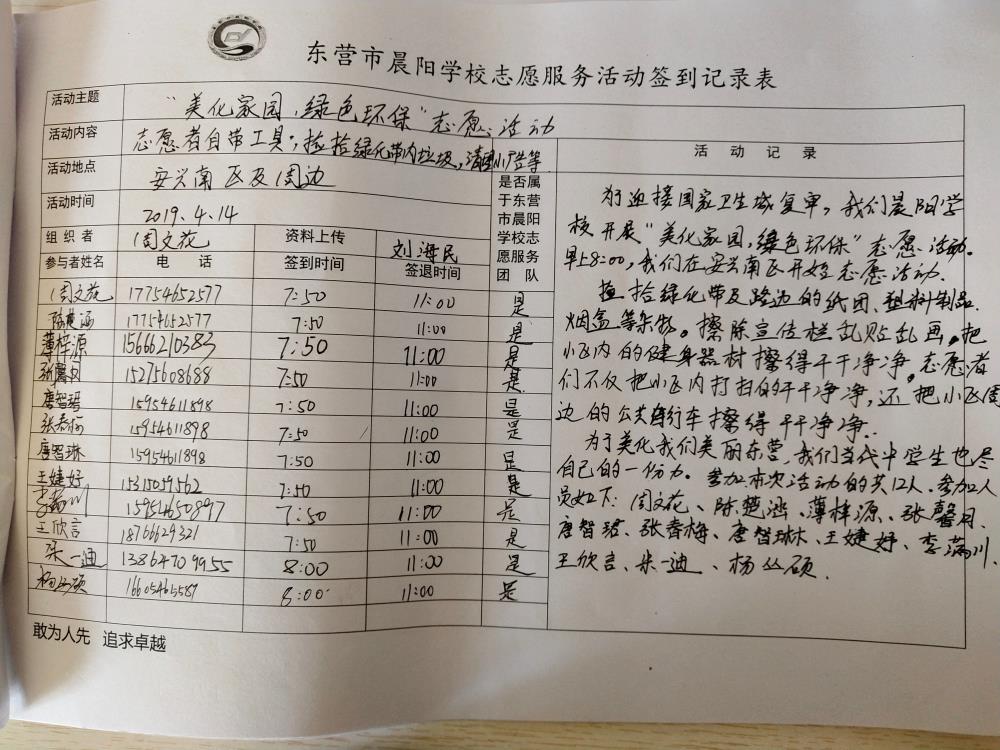 东营市晨阳学校志愿服务活动签到记录表
活动主题 “美化家园,绿色环保”志愿活动
活动内容 志愿者自带工具,捡拾绿化带内垃圾,清理小广告等
活动地点 安兴南区及周边
活动时间 2019.4.14
组织者 周文花 资料上传 刘海民
参与者姓名 电话 签到时间 签退时间 是否属于东营市晨阳学校志愿服务团队
周文花 17754652577 7:50 11:00 是
陈楚涵 17754652577 7:50 11:00 是
薄梓源 15666210383 7:50 11:00 是
张馨月 15275608688 7:50 11:00 是
唐智珺 15954611898 7:50 11:00 是
张春梅 15954611898 7:50 11:00 是
唐智琳 15954611898 7:50 11:00 是
王婕妤 15315059562 7:50 11:00 是
李满川 15954650897 7:50 11:00 是
王欣言 18766629321 7:50 11:00 是
朱一迪 13864709955 8:00 11:00 是
杨丛硕 16605465589 8:00 11:00 是
活动记录
为迎接国家卫生城复审,我们晨阳学
校开展“美化家园,绿色环保”志愿活动.
早上8:00,我们在安兴南区开始志愿活动.
捡拾绿化带及路边的纸团、塑料制品
烟盒等杂物。擦除宣传栏乱贴乱画,把
小区内的健身器材擦得干干净净,志愿者
们不仅把小区内打扫的干干净净,还把小区周
边的公共自行车擦得干干净净.
为了美化我们美丽东营,我们当代中学生也尽
自己的一份力。参加本次活动的共12人.参加人
员如下:周文花、陈楚涵、薄梓源、张馨月、
唐智珺、张春梅、唐智琳、王婕妤、李满川、
王欣言、朱一迪、杨丛硕.
敢为人先 追求卓越